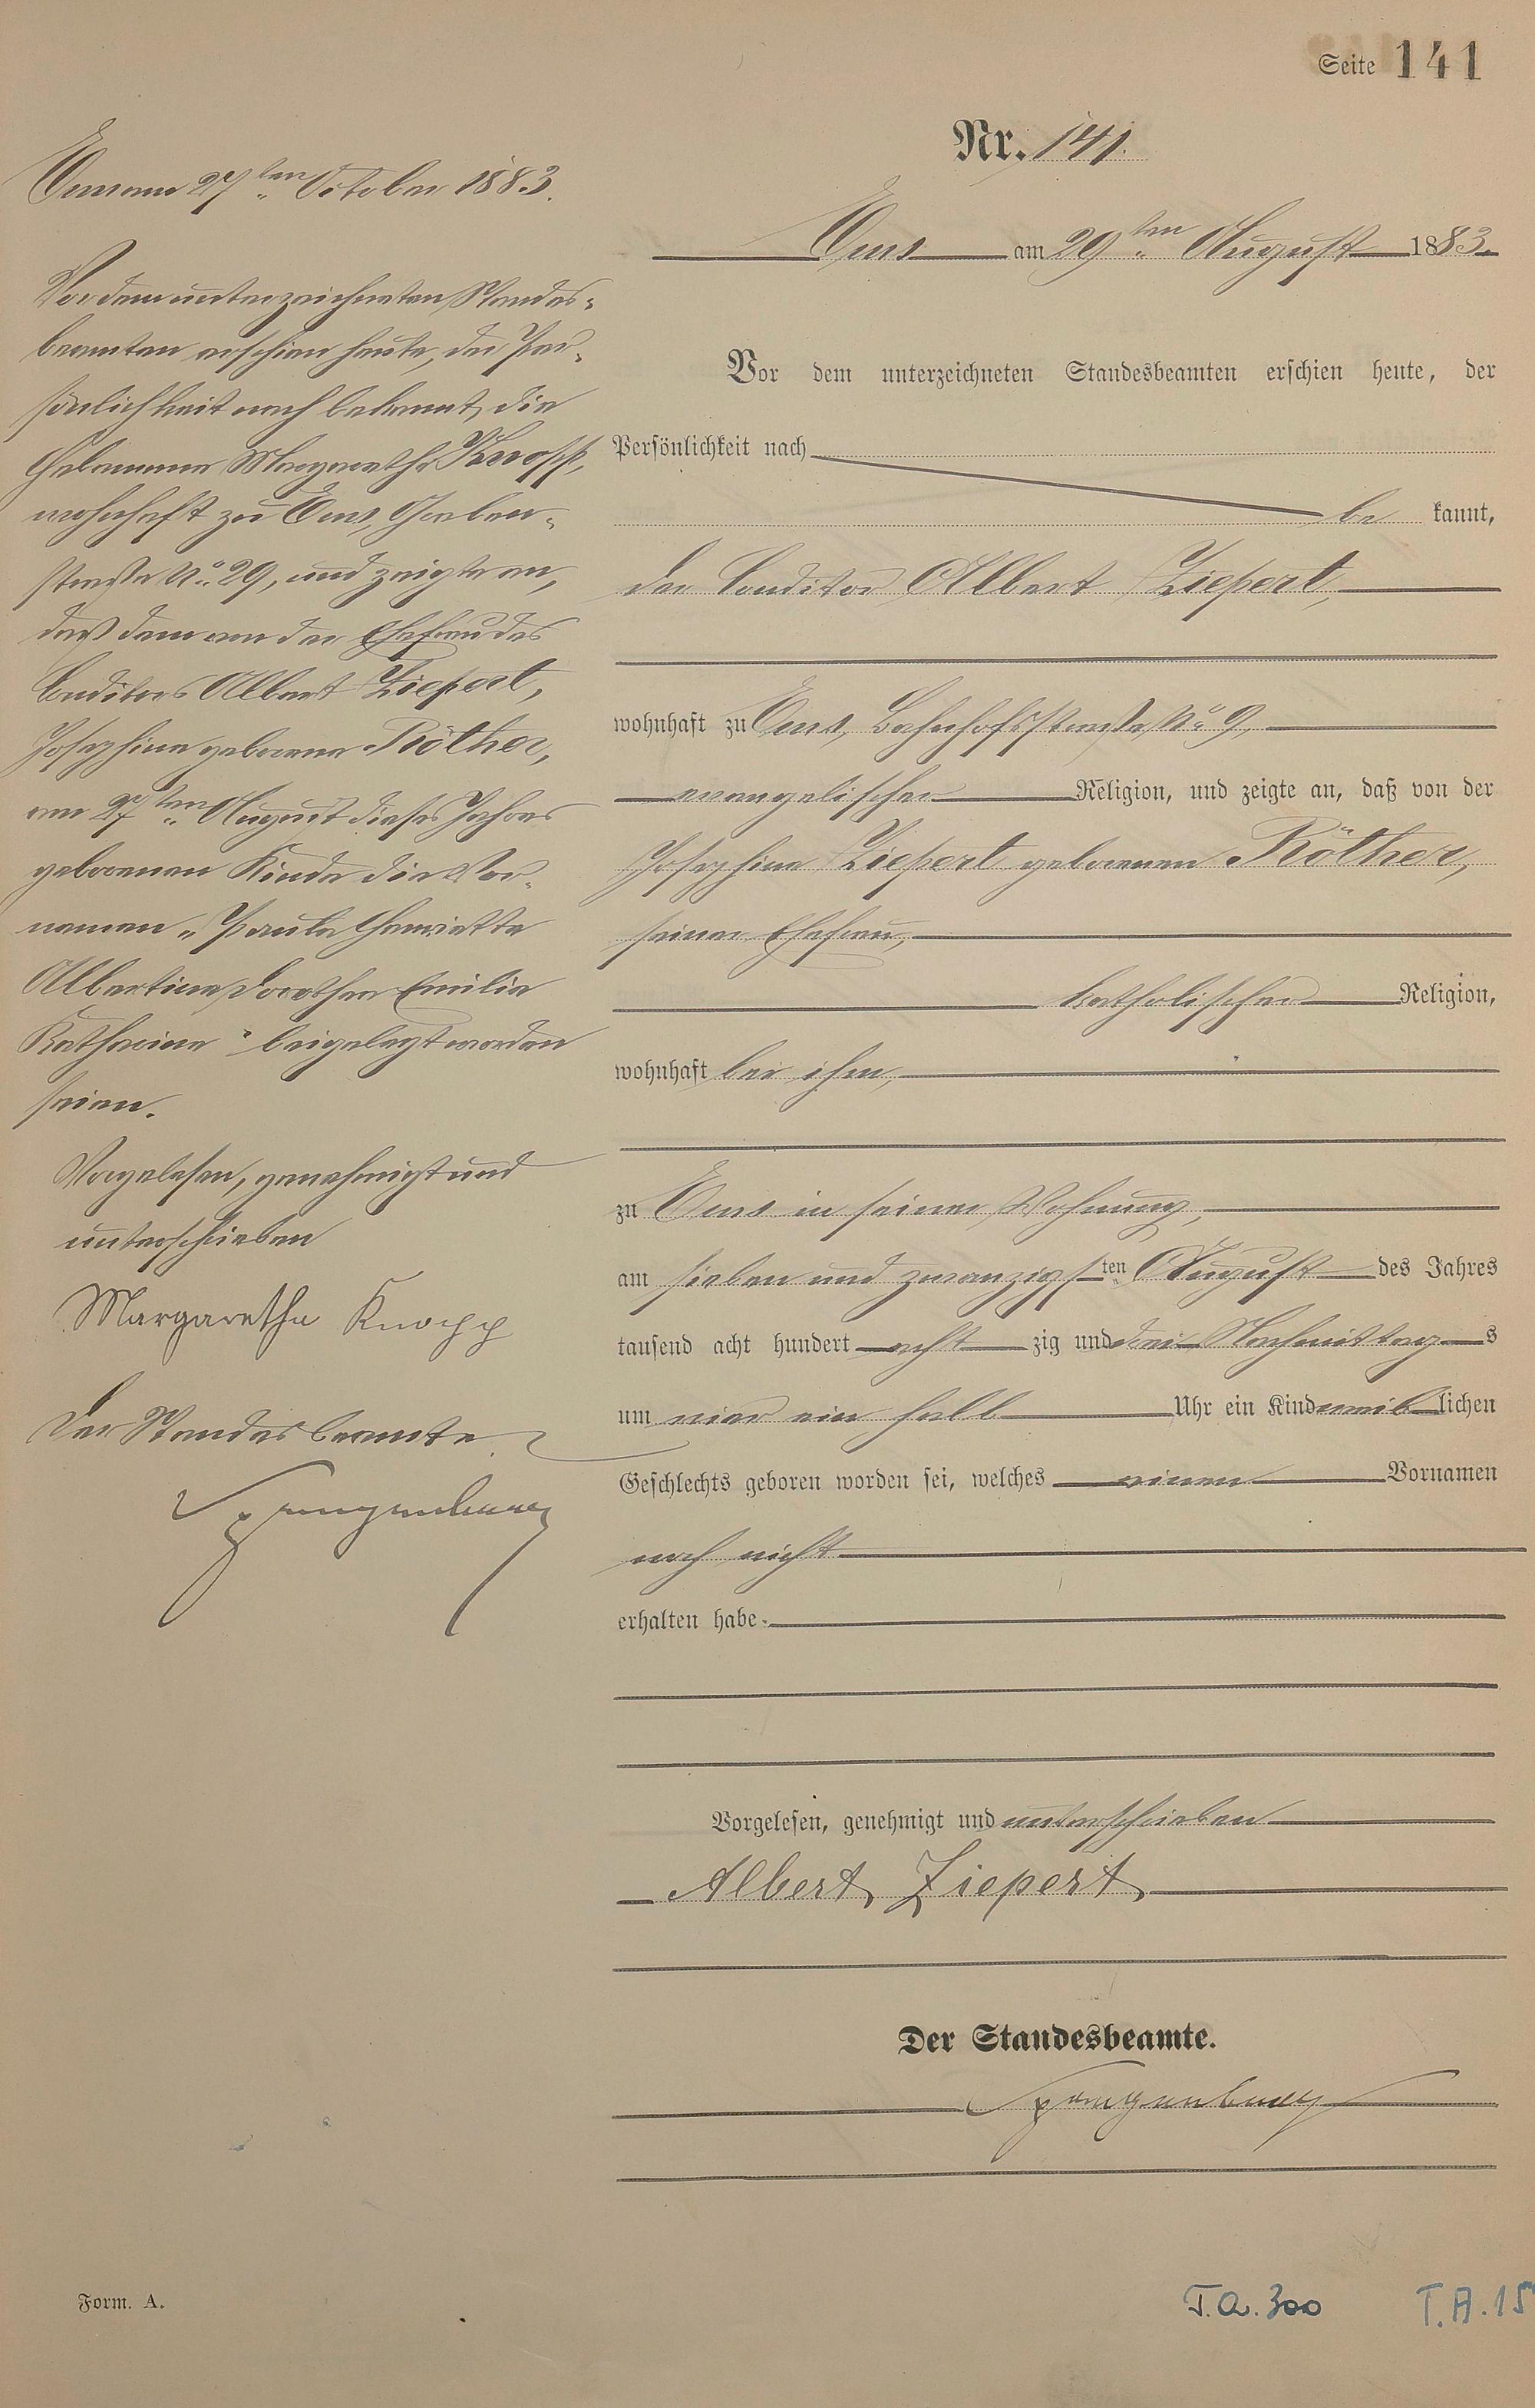 Seite 141
Nr. 141.
Ems am 29ten August 1883.
Vor dem unterzeichneten Standesbeamten erschien heute, der
Persönlichkeit nach
be kannt,
der Conditor Albert Ziepert,
wohnhaft zu Ems, Bahnhofsstraße No 9,
evangelischer Religion, und zeigte an, daß von der
Josephine Ziepert geborenen Röther,
seiner Ehefrau,
katholischer Religion,
wohnhaft bei ihm,
zu Ems in seiner Wohnung,
am sieben und zwanzigsten August des Jahres
tausend acht hundert acht zig und drei Nachmittag s
um vier ein halb Uhr ein Kind weib lichen
Geschlechts geboren worden sei, welches einen Vornamen
noch nicht
erhalten habe.
Vorgelesen, genehmigt und unterschrieben
Albert Ziepert
Der Standesbeamte.
Spangenberg
Ems am 27ten October 1883.
Vor dem unterzeichneten Standes-
beamten erschien heute, der Per-
sönlichkeit nach bekannt, die
Hebamme Margarethe Knopp,
wohnhaft zu Ems, Graben-
straße No. 29, und zeigte an,
daß dem von der Ehefrau des
Conditors Albert Ziepert,
Josephine geborene Röther,
am 27ten August dieses Jahres
geborenen Kinde die Vor-
namen „Paula Henriette
Albertine Dorothea Emilie
Katharine" beigelegt worden
seien.
Vorgelesen, genehmigt und
unterschrieben
Margaretha Knopp
Der Standesbeamte
Spangenberg
Form. A.
T.A. 300
T.A. 15